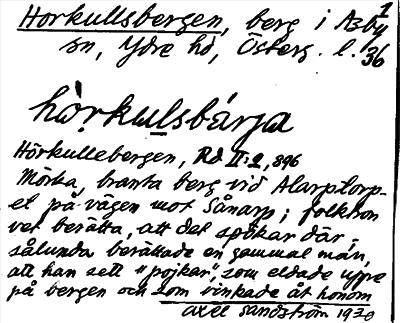 Horkullsbergen, berg i Asby 1
sn, Ydre hd, Österg. l. 36
hòrkulsbárja
Hörkullebergen, Rd II:2, 896
Mörka, branta berg vid Alarptorp-
et på vägen mot Sånarp; folktron
vet berätta, att det spökar där;
sålunda berättade en gammal man,
att han sett "pojkar", som eldade uppe
på bergen och som vinkade åt honom
Axel Sandström 1930